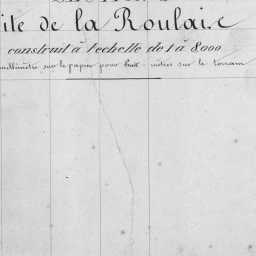 ite de la Roulaie
construit à l'echelle de 1 à 8000
millimètre sur le papier pour huit mètres sur le terrain